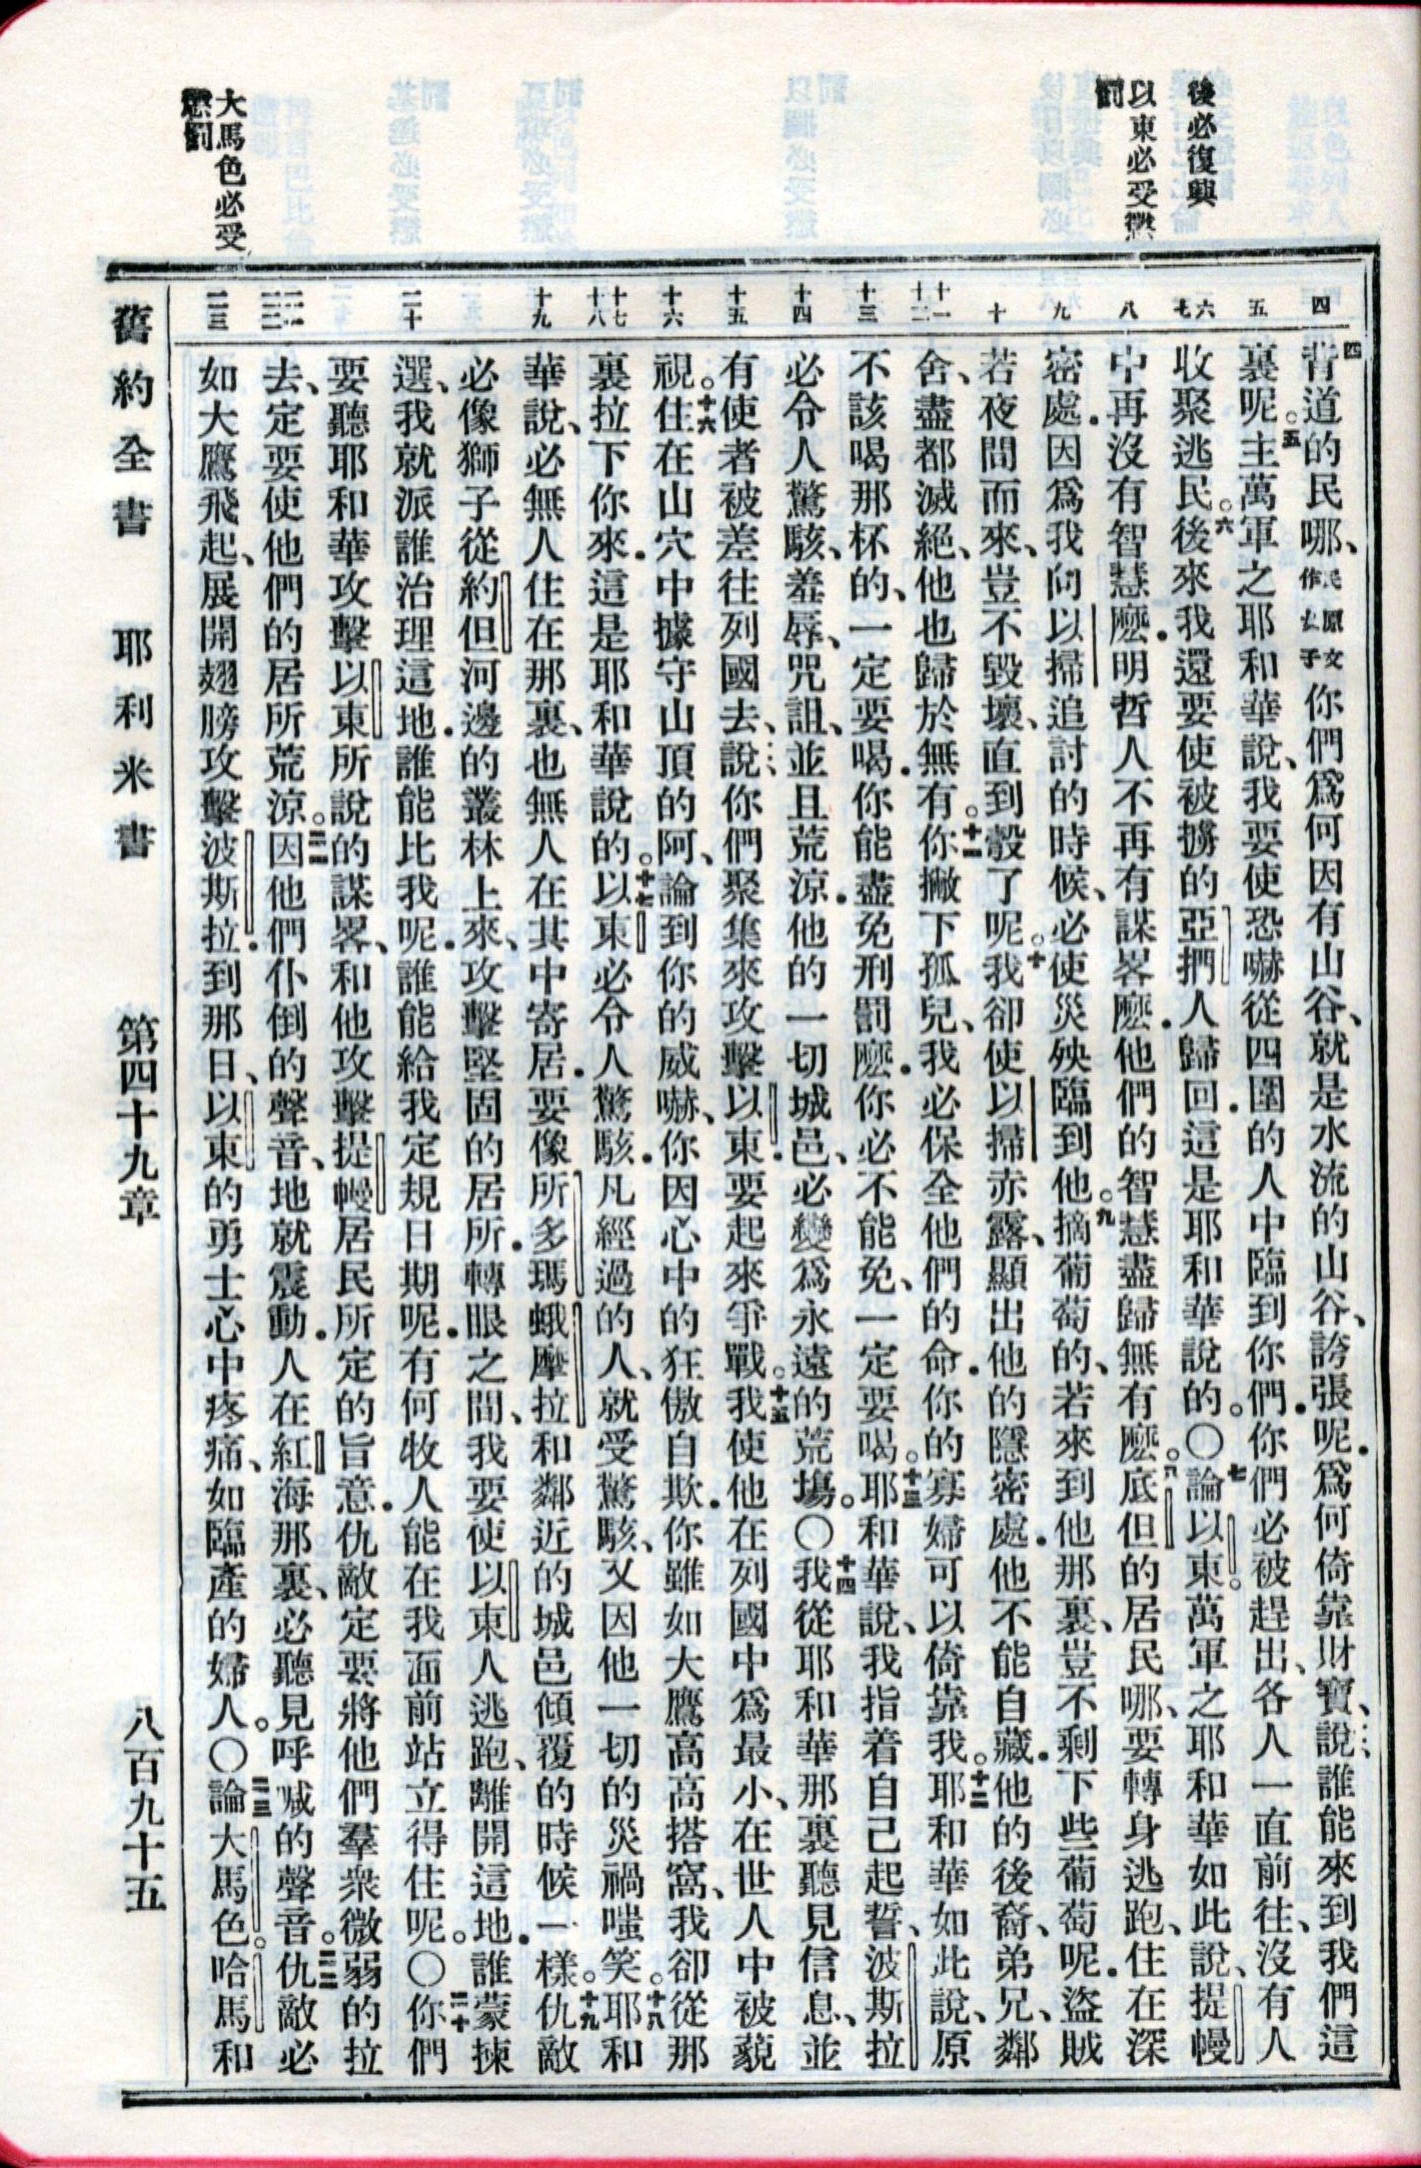 後必復興
以東必受懲
罰
大馬色必受
懲罰
四
五
六
七
八
九
十
十一
十二
十三
十四
十五
十六
十七
十八
十九
二十
二一
二二
二三
四背道的民哪、民原文作女子你們爲何因有山谷、就是水流的山谷、誇張呢．爲何倚靠財寶、說、誰能來到我們這
裏呢。五主萬軍之耶和華說、我要使恐嚇從四圍的人中臨到你們．你們必被趕出、各人一直前往、沒有人
收聚逃民。六後來我還要使被擄的亞捫人歸回．這是耶和華說的。〇七論以東。萬軍之耶和華如此說、提幔
中再沒有智慧麽．明哲人不再有謀畧麽．他們的智慧盡歸無有麽。八底但的居民哪、要轉身逃跑、住在深
密處．因爲我向以掃追討的時候、必使災殃臨到他。九摘葡萄的、若來到他那裏、豈不剩下些葡萄呢．盜賊
若夜間而來、豈不毀壞、直到彀了呢。十我卻使以掃赤露、顯出他的隱密處．他不能自藏．他的後裔、弟兄、鄰
舍、盡都滅絕、他也歸於無有。十一你撇下孤兒、我必保全他們的命．你的寡婦可以倚靠我。十二耶和華如此說、原
不該喝那杯的、一定要喝．你能盡免刑罰麽．你必不能免、一定要喝。十三耶和華說、我指着自己起誓、波斯拉
必令人驚駭、羞辱、咒詛、並且荒涼．他的一切城邑、必變爲永遠的荒場。〇十四我從耶和華那裏聽見信息、並
有使者被差往列國去、說、你們聚集來攻擊以東．要起來爭戰。十五我使他在列國中爲最小、在世人中被藐
視。十六住在山穴中據守山頂的阿、論到你的威嚇、你因心中的狂傲自欺．你雖如大鷹高高搭窩、我卻從那
裏拉下你來．這是耶和華說的。十七以東必令人驚駭．凡經過的人、就受驚駭、又因他一切的災禍嗤笑。十八耶和
華說、必無人住在那裏、也無人在其中寄居．要像所多瑪蛾摩拉和鄰近的城邑傾覆的時候一樣。十九仇敵
必像獅子從約但河邊的叢林上來、攻擊堅固的居所．轉眼之間、我要使以東人逃跑、離開這地．誰蒙揀
選、我就派誰治理這地．誰能比我呢．誰能給我定規日期呢．有何牧人能在我面前站立得住呢。〇二十你們
要聽耶和華攻擊以東所說的謀畧、和他攻擊提幔居民所定的旨意．仇敵定要將他們羣衆微弱的拉
去、定要使他們的居所荒涼。二一因他們仆倒的聲音、地就震動．人在紅海那裏、必聽見呼喊的聲音。二二仇敵必
如大鷹飛起、展開翅膀攻擊波斯拉．到那日、以東的勇士心中疼痛、如臨產的婦人。〇二三論大馬色。哈馬和
舊約全書　耶利米書　第四十九章　八百九十五